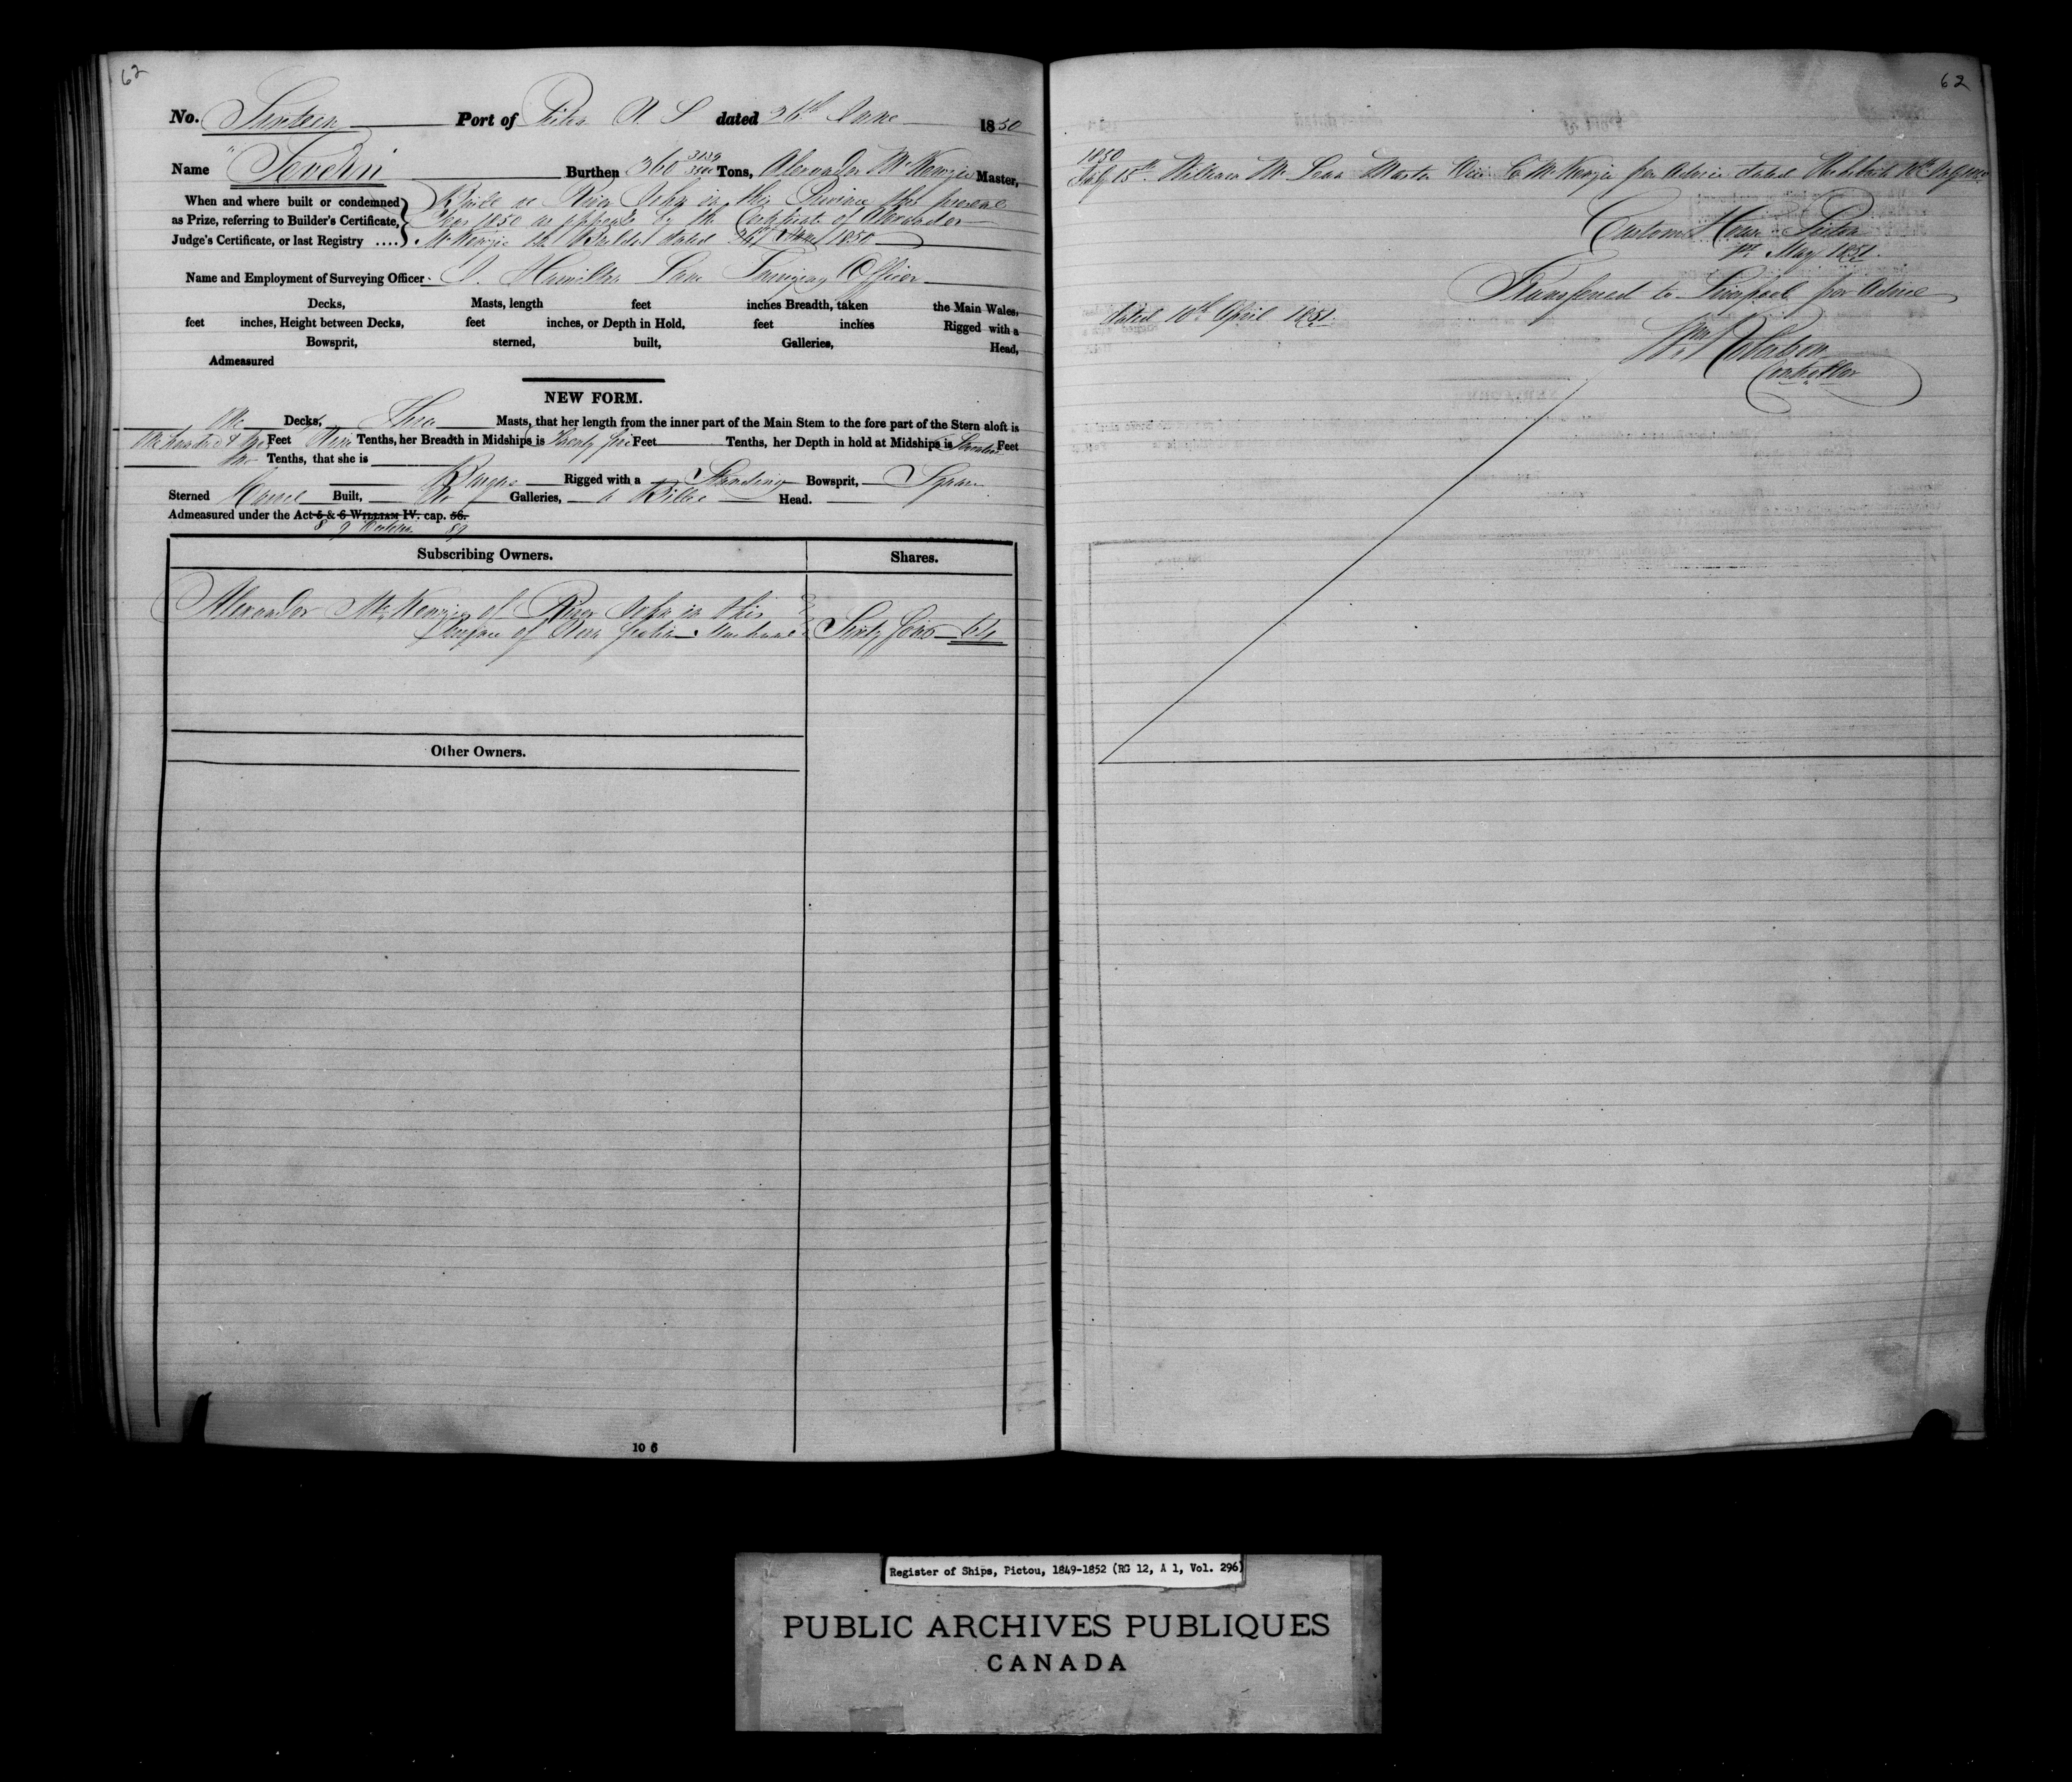 62
No. Sixteen Port of Pictou N S dated 26th June 1850
Name "Severn" Burthen 360 Tons, Alexander McKenzie Master,
When and where built or condemned
as Prize, referring to Builder's Certificate,
Judge's Certificate, or last Registry ....
Built at River John in this Province this present
Year 1850 as appears by the Certificate of Alexander
McKenzie the Builder dated 26th June 1850
Name and Employment of Surveying Officer Hamilton Lane Surveying Officer
Decks, Masts, length feet inches Breadth, taken the Main Wales,
feet inches, Height between Decks, feet inches, or Depth in Hold, feet inches Rigged with a
Bowsprit, sterned, built, Galleries, Head,
Admeasured
NEW FORM.
One Decks, Three Masts, that her length from the inner part of the Main Stem to the fore part of the Stern aloft is
One hundred & Feet Nine Tenths, her Breadth in Midships is Twenty five Feet Tenths, her Depth in hold at Midships is Seventeen Feet
Tenths, that she is
Barque Rigged with a Standing Bowsprit, Square
Sterned Carvel Built, No Galleries, a Billet Head.
Admeasured under the Act 5 & 6 WILLIAM IV. cap. 56.
8 9 Victoria 89
Subscribing Owners. Shares.
Alexander McKenzie of River John in this
Province of Nova Scotia Merchant Sixty four 64
Other Owners.
10 6
62
1850
July 15th William McLean Master Vice McKenzie per Advice dated
Custom House Pictou
1st May 1851.
Transferred to Liverpool per Advice
dated 10th April 1851.
Controller
Register of Ships, Pictou, 1849-1852 (RG 12, A 1, Vol. 296)
PUBLIC ARCHIVES PUBLIQUES
CANADA